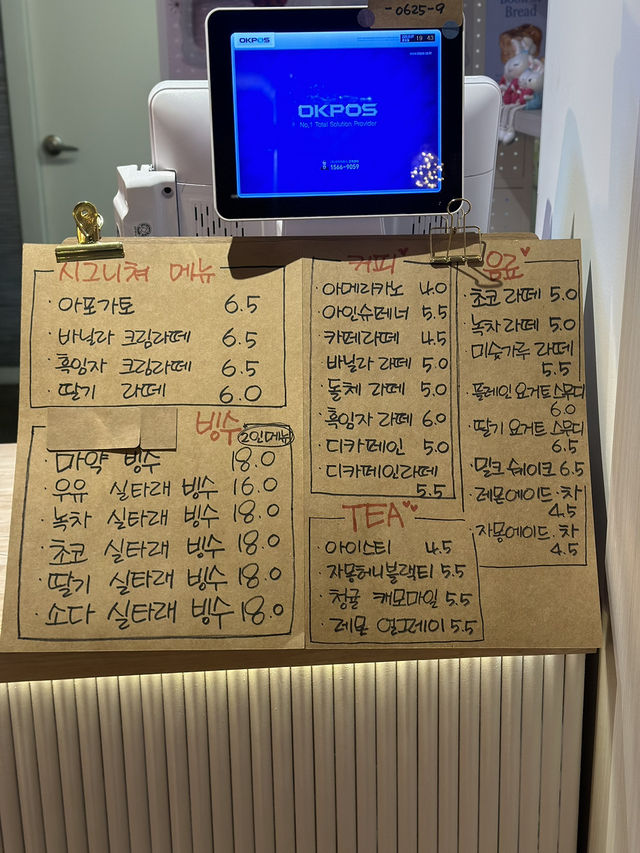 -0625-9
Bread
OKPOS
19 43
OKPOS
No.1 Total Solution Provider
1566-9059
시그니쳐 메뉴
· 아포가토 6.5
· 바닐라 크림라떼 6.5
· 흑임자 크림라떼 6.5
· 딸기 라떼 6.0
빙수 2인메뉴
· 마약 빙수 18.0
· 우유 실타래 빙수 16.0
· 녹차 실타래 빙수 18.0
· 초코 실타래 빙수 18.0
· 딸기 실타래 빙수 18.0
· 소다 실타래 빙수 18.0
커피
· 아메리카노 4.0
· 아인슈페너 5.5
· 카페라떼 4.5
· 바닐라 라떼 5.0
· 돌체 라떼 5.0
· 흑임자 라떼 6.0
· 디카페인 5.0
· 디카페인라떼
5.5
TEA
· 아이스티 4.5
· 자몽허니블랙티 5.5
· 청귤 캐모마일 5.5
· 레몬 얼그레이 5.5
음료
· 초코 라떼 5.0
· 녹차 라떼 5.0
· 미숫가루 라떼
5.5
· 플레인 요거트 스무디
6.0
· 딸기 요거트 스무디
6.5
· 밀크 쉐이크 6.5
· 레몬에이드·차
4.5
· 자몽에이드·차
4.5